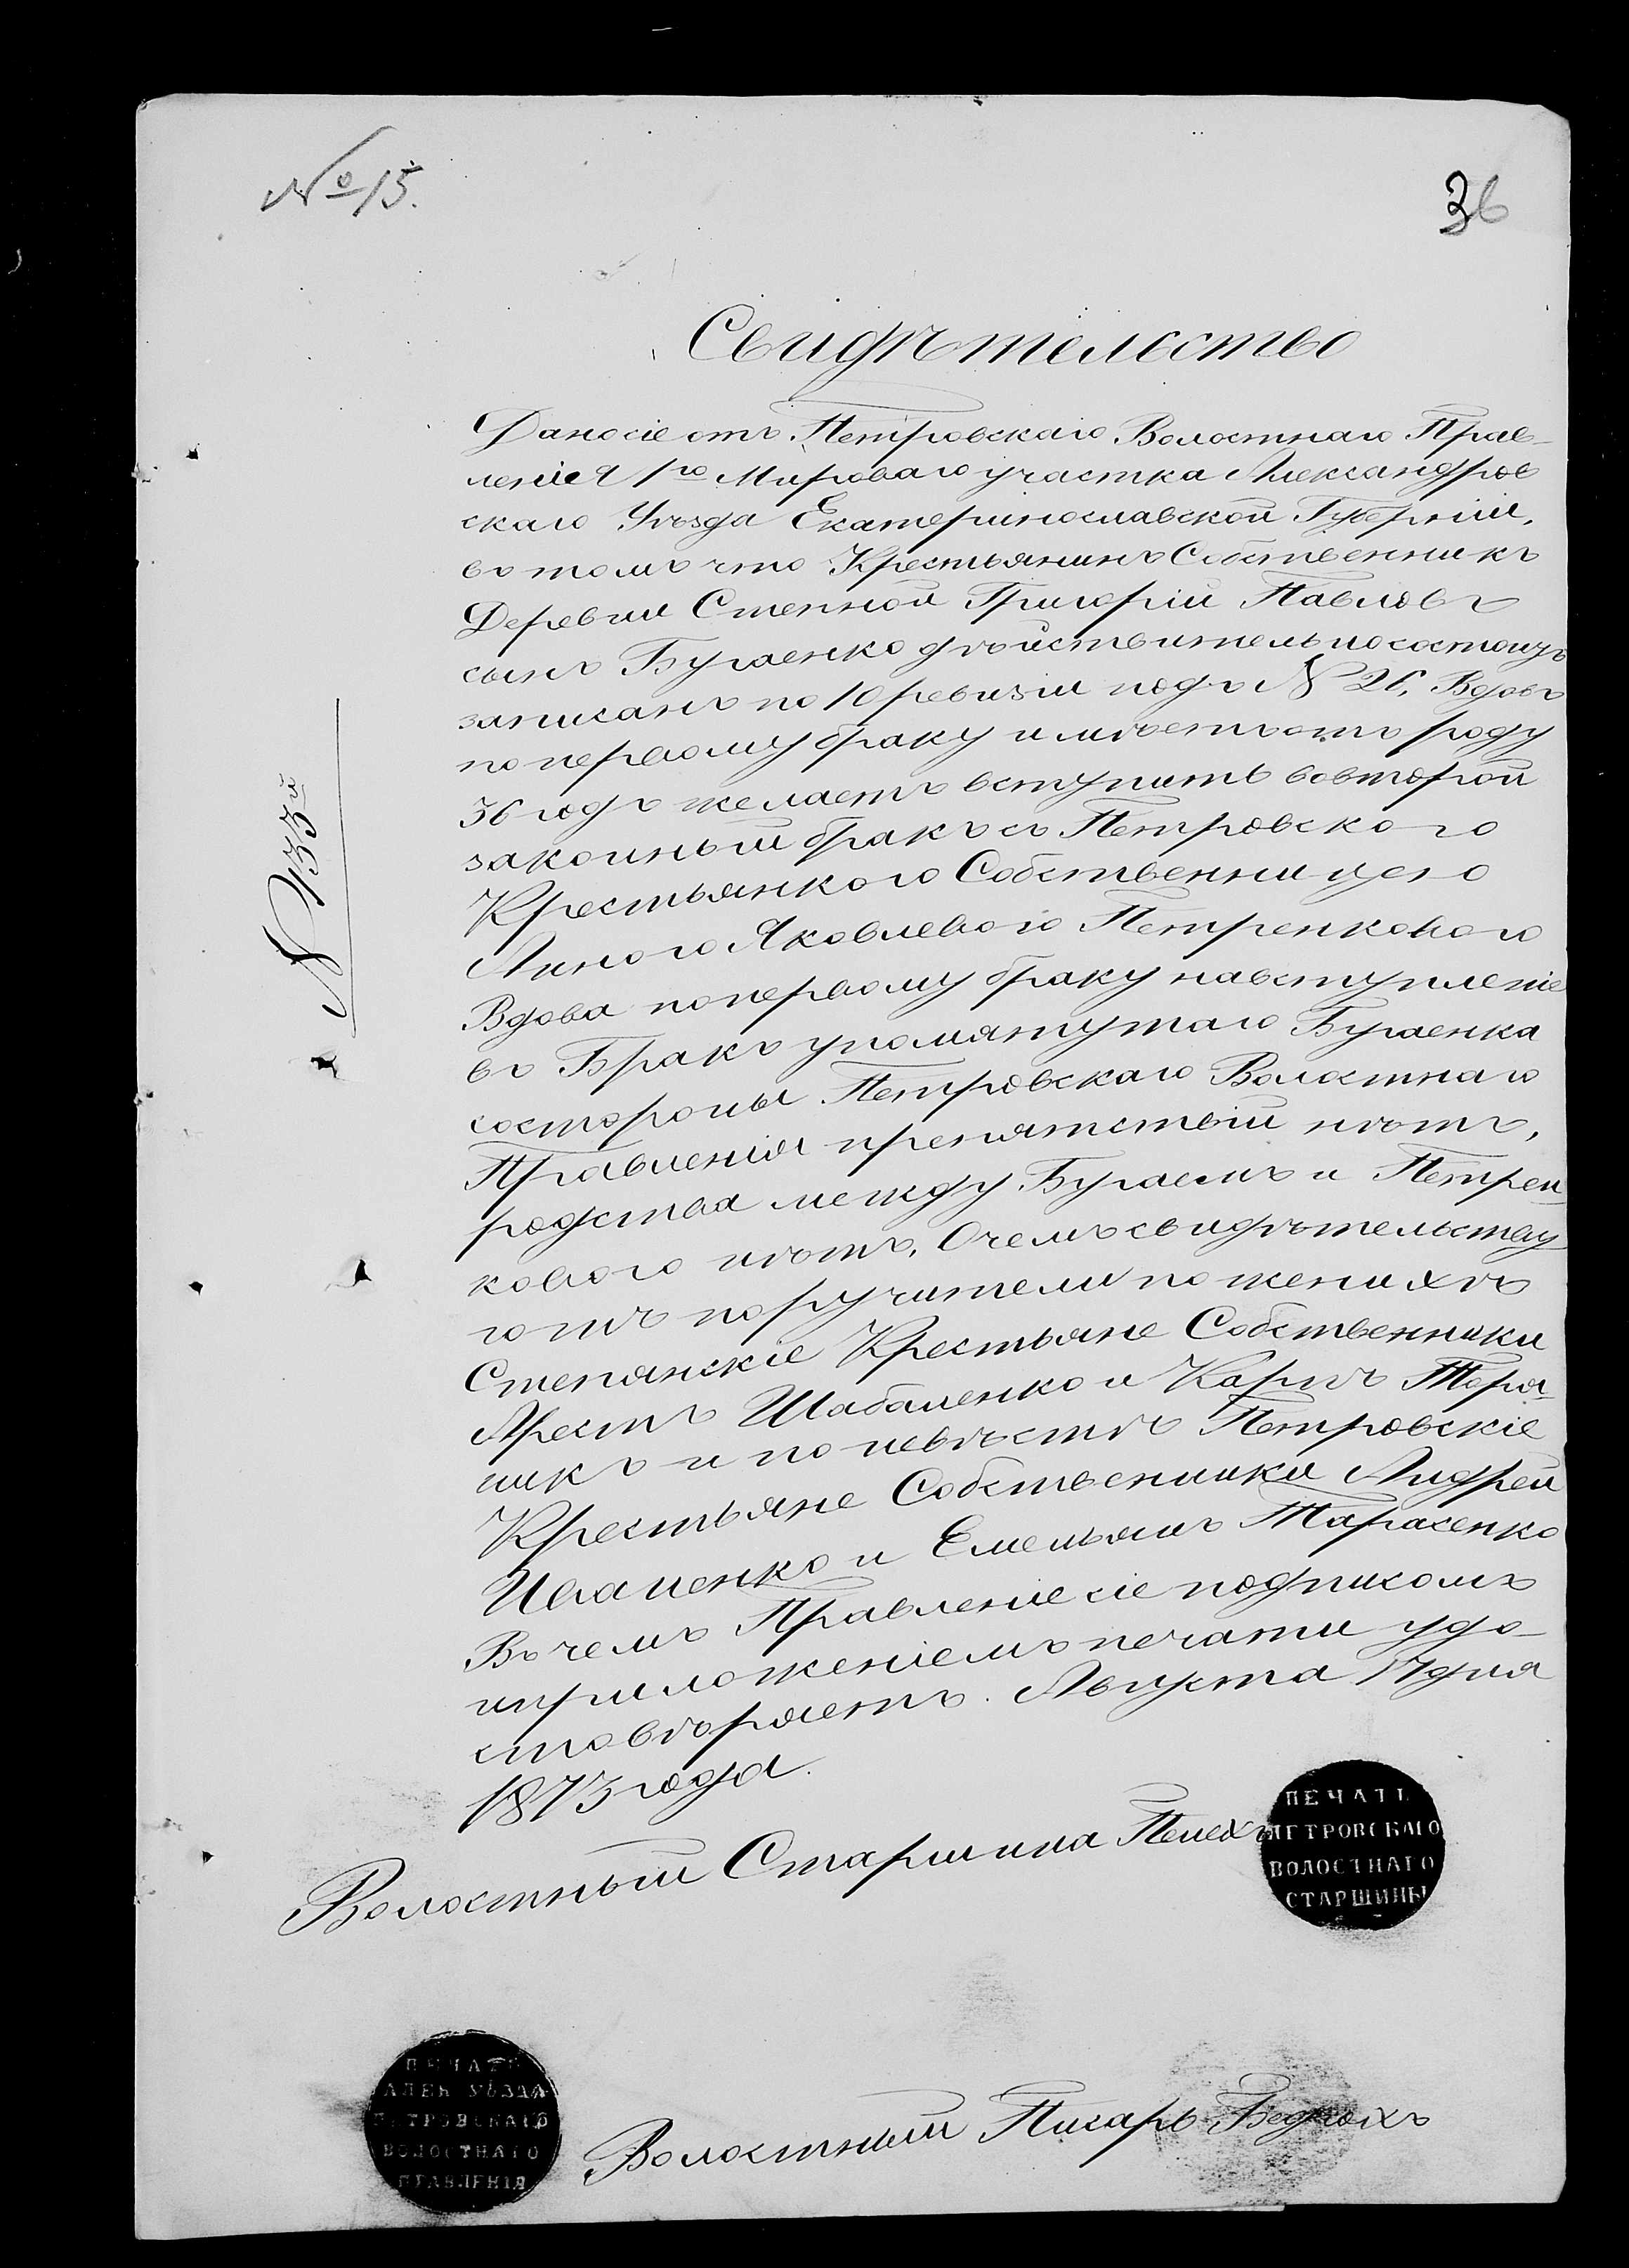 № 15.
36
Свидѣтельство
Дано сіе отъ Петровскаго Волостнаго Прав-
ленія 1го Мироваго участка Александров
скаго Уѣзда Екатеринославской Губерніи,
въ томъ что Крестьянинъ Собственникъ
Деревни Степной Григорій Павловъ
сынъ Бугаенко дѣйствительно состоитъ
записанъ по 10 ревизіи подъ № 26, Вдовъ
по первому браку имѣетъ отъ роду
36 годъ желаетъ вступить во второй
законный бракъ съ Петровского
Крестьянкого Собственницего
Анного Яковлевого Петренкового
Вдова по первому браку на вступленіе
въ Бракъ упомянутаго Бугаенка
со стороны Петровскаго Волостнаго
Правленія препятствій нѣтъ,
родства между Бугаемъ и Петрен
кового нѣтъ, О чемъ свидѣтельству
готъ поручители по женихѣ
Степянскіе Крестьяне Собственники
Арестъ Шабаленко и Карпъ Теря-
никъ и по невѣстѣ Петровскіе
Крестьяне Собственники Андрей
Иваненко и Емельянъ Тарасенко
Въ чемъ Правленіе сіе подписомъ
и приложеніемъ печати удо-
стовѣряетъ. Августа 17 дня
1873 года.
№ 133й
Волостный Старшина Пелехъ
ПЕЧАТЬ
ПЕТРОВСКАГО
ВОЛОСТНАГО
СТАРШИНЫ
ПЕЧАТЬ
АЛЕК УѢЗДА
ПЕТРОВСКАГО
ВОЛОСТНАГО
ПРАВЛЕНІЯ
Волостный Писарь